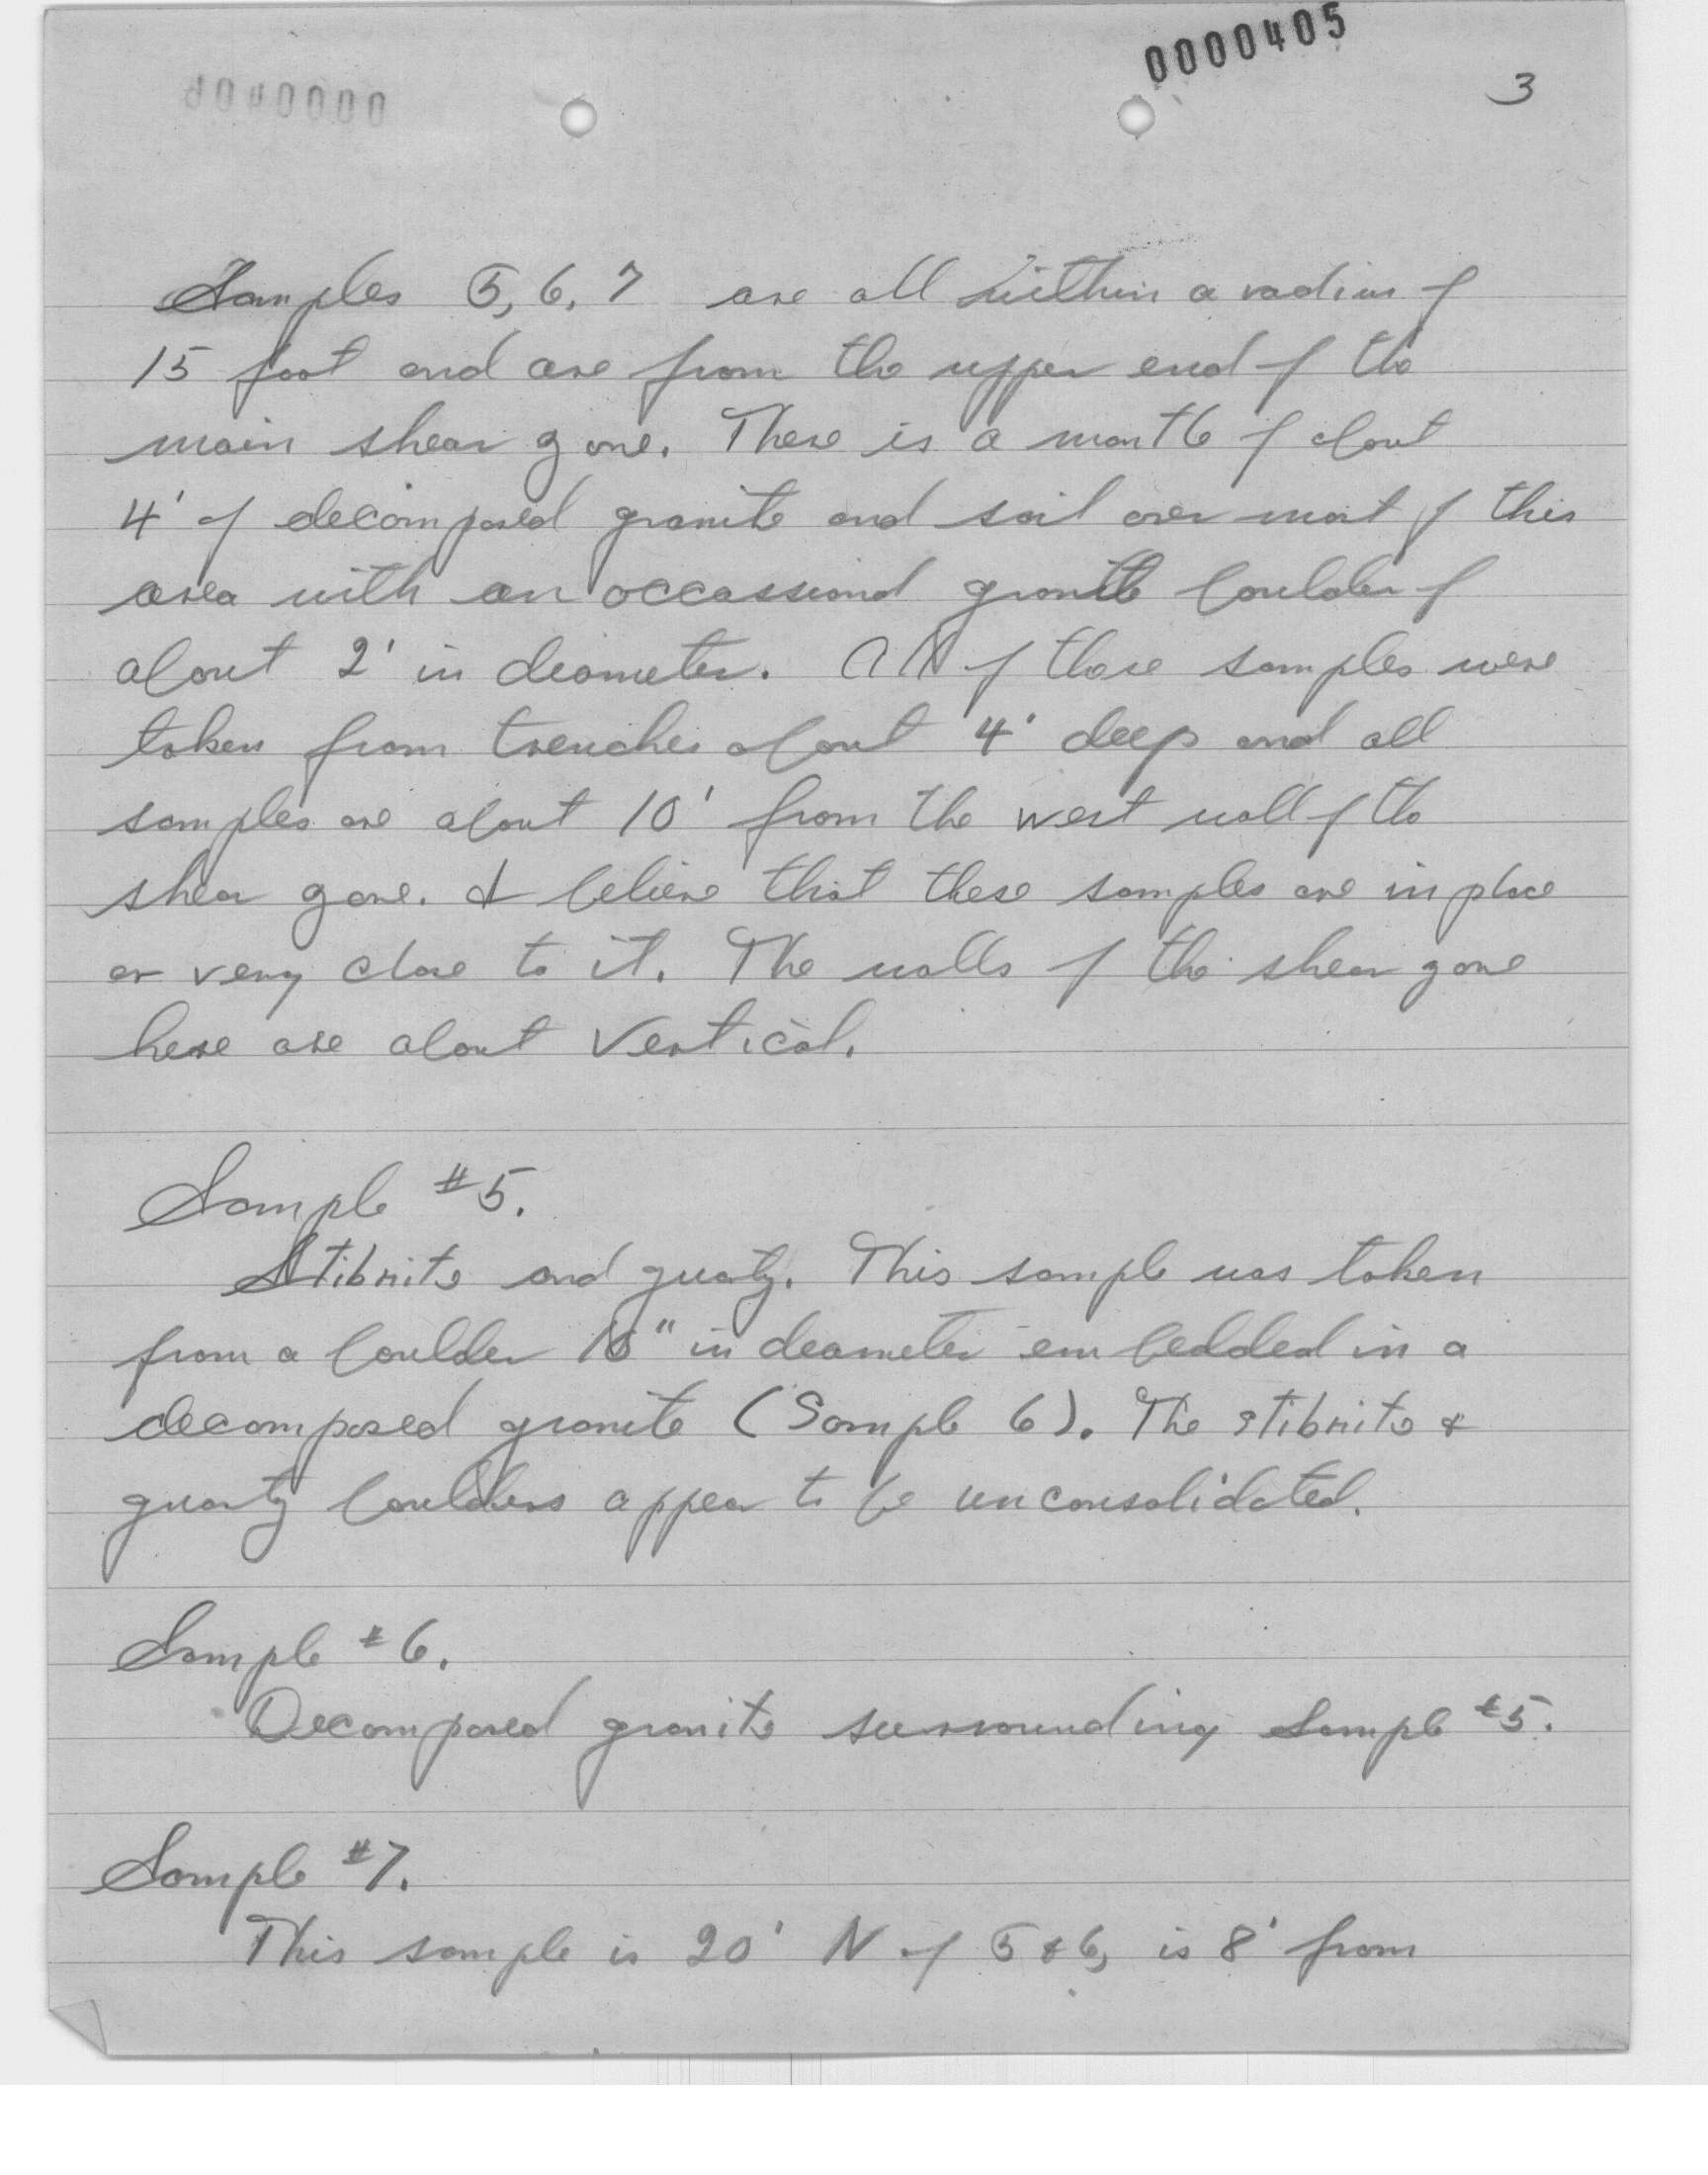 0000405
3
Samples 5, 6, 7 are all within a radius of
15 foot and are from the upper end of the
main shear zone. There is a mantle of about
4' of decomposed granite and soil over most of this
area with an occassional granite boulder of
about 2' in deameter. All of these samples were
taken from trenches about 4' deep and all
samples are about 10' from the west wall of the
shear zone. I believe that these samples are in place
or very close to it. The walls of the shear zone
here are about vertical.
Sample #5.
Stibnite and quartz. This sample was taken
from a boulder " in deameter embedded in a
decomposed granite (Sample 6). The stibnite &
quartz boulders appear to be unconsolidated.
Sample #6.
Decomposed granite surrounding Sample #5.
Sample #7.
This sample is 20' N of 5 & 6, is 8' from